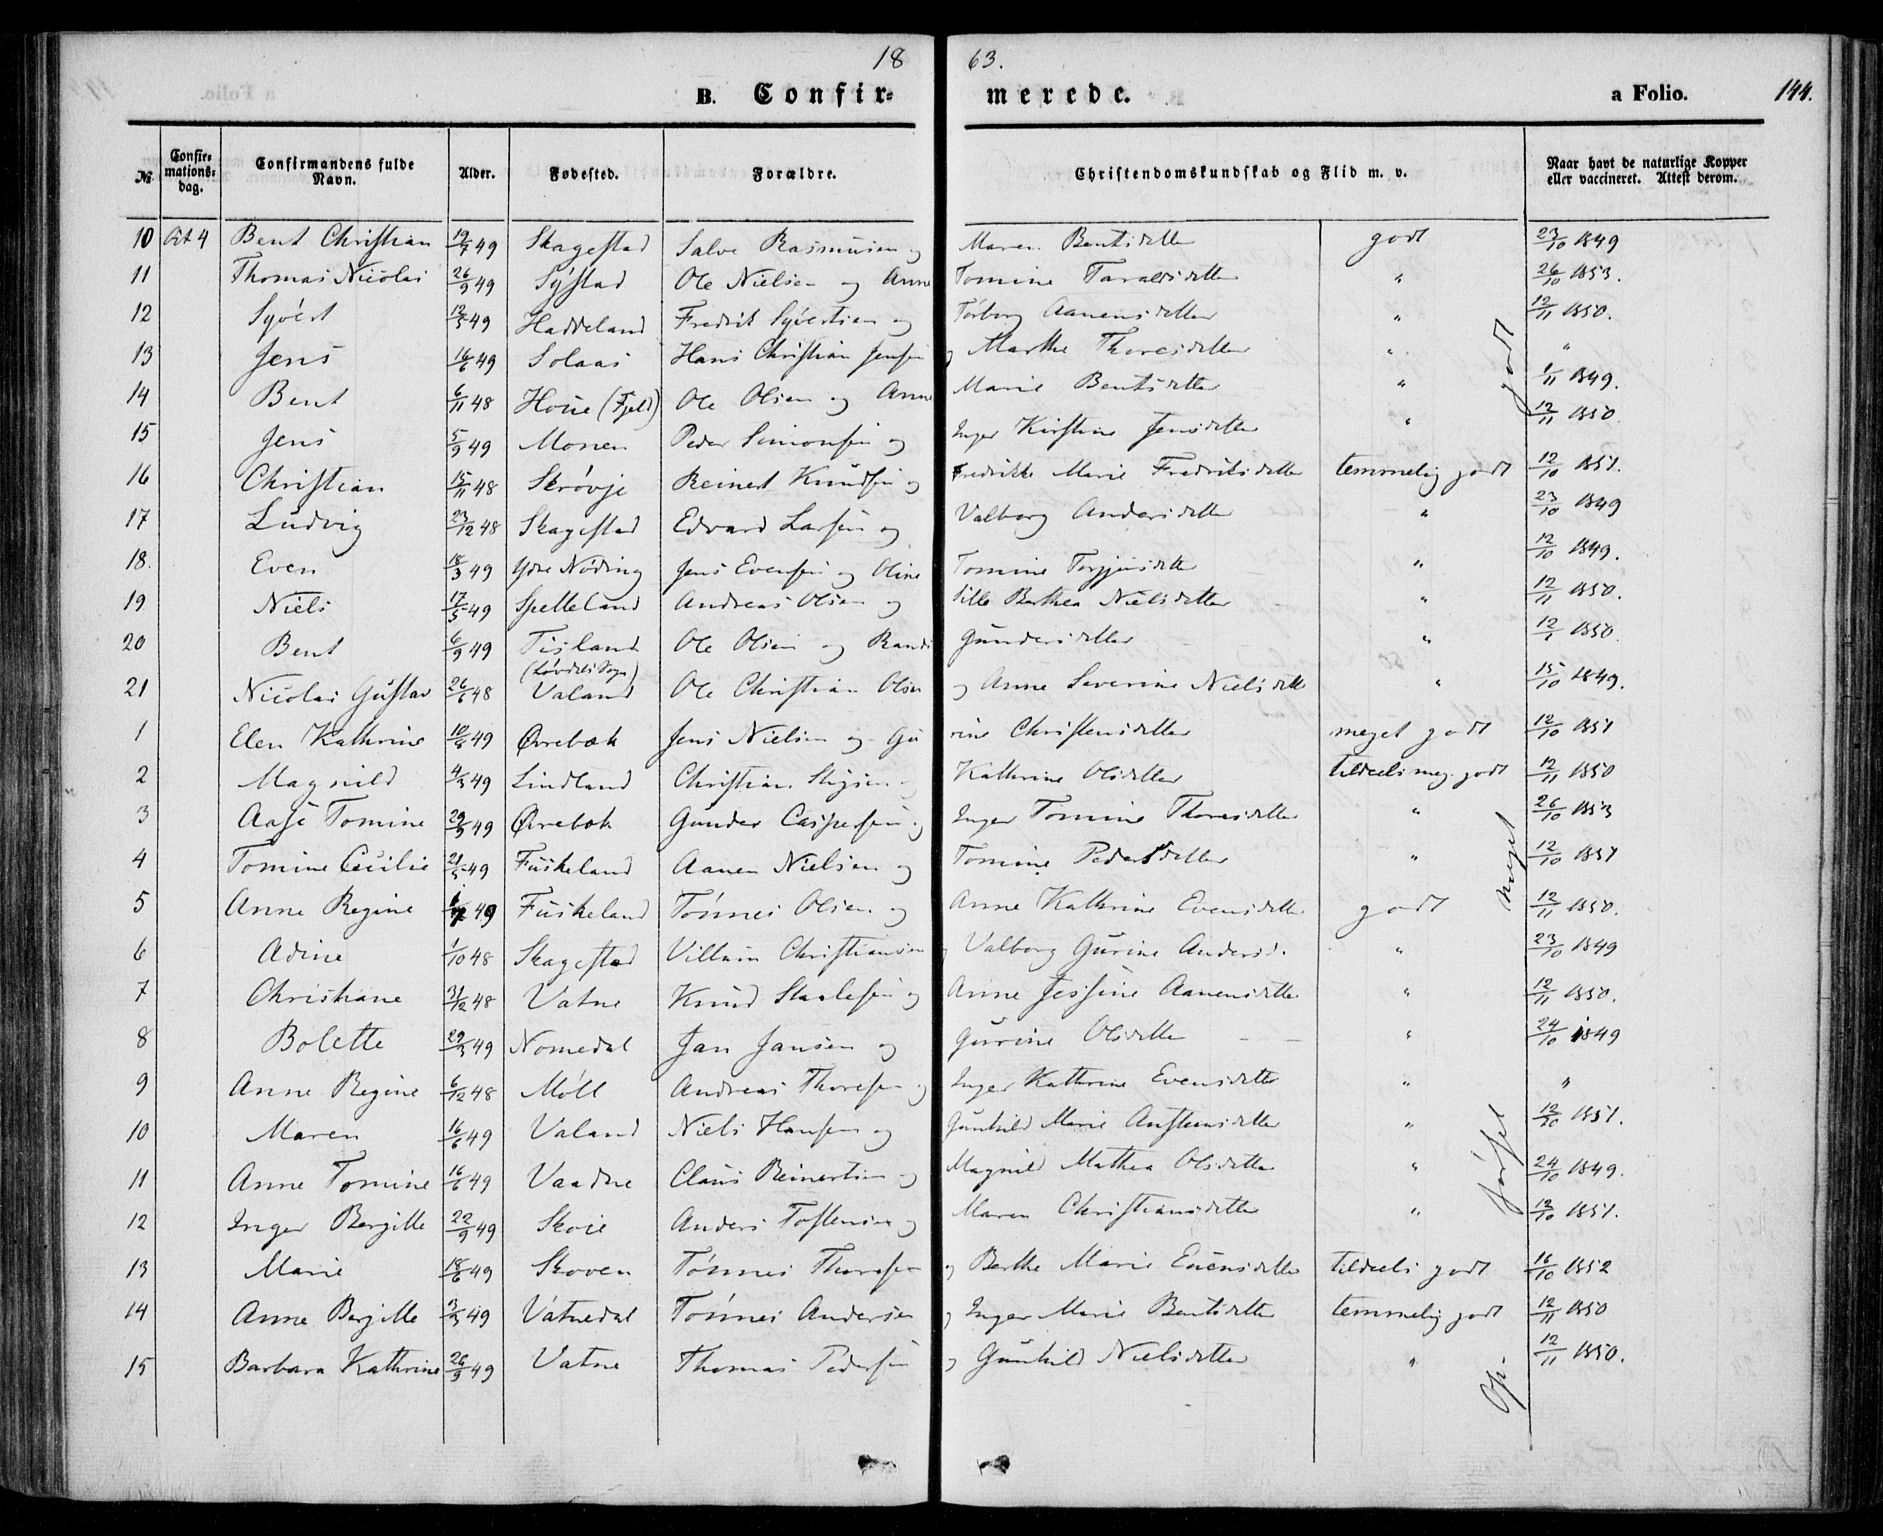 1863.
B. Confirmerede. a Folio. 144.
№ Confirmationsdag. Confirmandens fulde Navn. Alder. Fødested. Forældre. Christendomskundskab og Flid m. v. Naar havt de naturlige Kopper eller vaccineret. Attest derom.
10 Oct 4 Bent Christian 19/7 49 Skagestad Salve Rasmusen og Maren Bentsdatter godt 23/10 1849
11 Thomas Nicolai 26/9 49 Systad Ole Nielsen og Anne Tomine Taraldsdatter " 26/10 1853.
12 Syvert 12/5 49 Haddeland Fredrik Syvertsen og Torborg Aanensdatter " 12/11 1850.
13 Jens 16/6 49 Solaas Hans Christian Jensen og Marthe Thoresdatter " "
14 Bent 6/11 48 Houe (Fjeld) Ole Olsen og Anne Marie Bentsdatter " 1/11 1849.
15 Jens 5/9 49 Monen Peder Simonsen og Inger Kirstine Jensdatter " 12/11 1850
16 Christian 15/11 48 Skrøvje Reinert Knudsen og Fredrikke Marie Fredriksdatter temmelig godt 12/10 1851.
17 Ludvig 23/12 48 Skagestad Edvard Larsen og Valborg Andersdatter " 23/10 1849
18. Even 18/3 49 Ydre Nøding Jens Evensen og Oline Tomine Torjusdatter " 12/10 1849.
19 Niels 17/5 49 Spetteland Andreas Olsen og Sille Berthea Nielsdatter " 12/11 1850.
20 Bent 6/9 49 Tisland Ole Olsen og Randi Gundersdatter " 1850.
(Løvdals Sogn)
21 Nicolai Gustav 26/6 48 Valand Ole Christian Olsen og Anne Severine Nielsdatt " 15/10 1849.
1 Elen Kathrine 10/4 49 Øvrebøk Jens Nielsen og Gurine Christensdatter meget godt 12/10 1851
2 Magnild 4/3 49 Lindland Christian Stigsen og Kathrine Olsdatter tildeels meg. godt 12/11 1850
3 Aase Tomine 29/3 49 Øvrebøk Gunder Caspersen og Inger Tomine Thoresdatter " 26/10 1853
4 Tomine Cecilie 21/5 49 Fuskeland Aanen Nielsen og Tomine Pedersdatter " 12/10 1851
5 Anne Regine 49 Fuskeland Tønnes Olsen og Anne Kathrine Evensdatter godt 12/11 1850.
6 Adine 1/10 48 Skagestad Villum Christiansen og Valborg Gurine Andersd. " 23/10 1849
7 Christiane 31/12 48 Vatne Knud Staalesen og Anne Jessine Aanensdatter " 12/11 1850.
8 Bolette 29/3 49 Nomedal Jan Jansen og Gurine Olsdatter " 24/10 1849
9 Anne Regine 6/12 48 Møll Andreas Thoresen og Inger Kathrine Evensdatter " "
10 Maren 16/6 49 Valand Niels Hansen og Gunhild Marie Austensdatter " 12/10 1851.
11 Anne Tomine 16/6 49 Vaadne Claus Reinertsen og Magnild Mathea Olsdatter " 24/10 1849.
12 Inger Bergitte 22/9 49 Skoie Anders Toftensen og Maren Christiansdatter " 12/10 1851.
13 Marie 18/6 49 Skoven Tønnes Thoresen og Berthe Marie Evensdatter tildeels godt 16/10 1852
14 Anne Bergitte 3/3 49 Vatnedal Tønnes Andersen og Inger Marie Bentsdatter temmelig godt 12/11 1850
15 Barbara Kathrine 26/9 49 Vatne Thomas Pedersen og Gunhild Nielsdatter " 12/11 1850.
Op. førsel meget godt